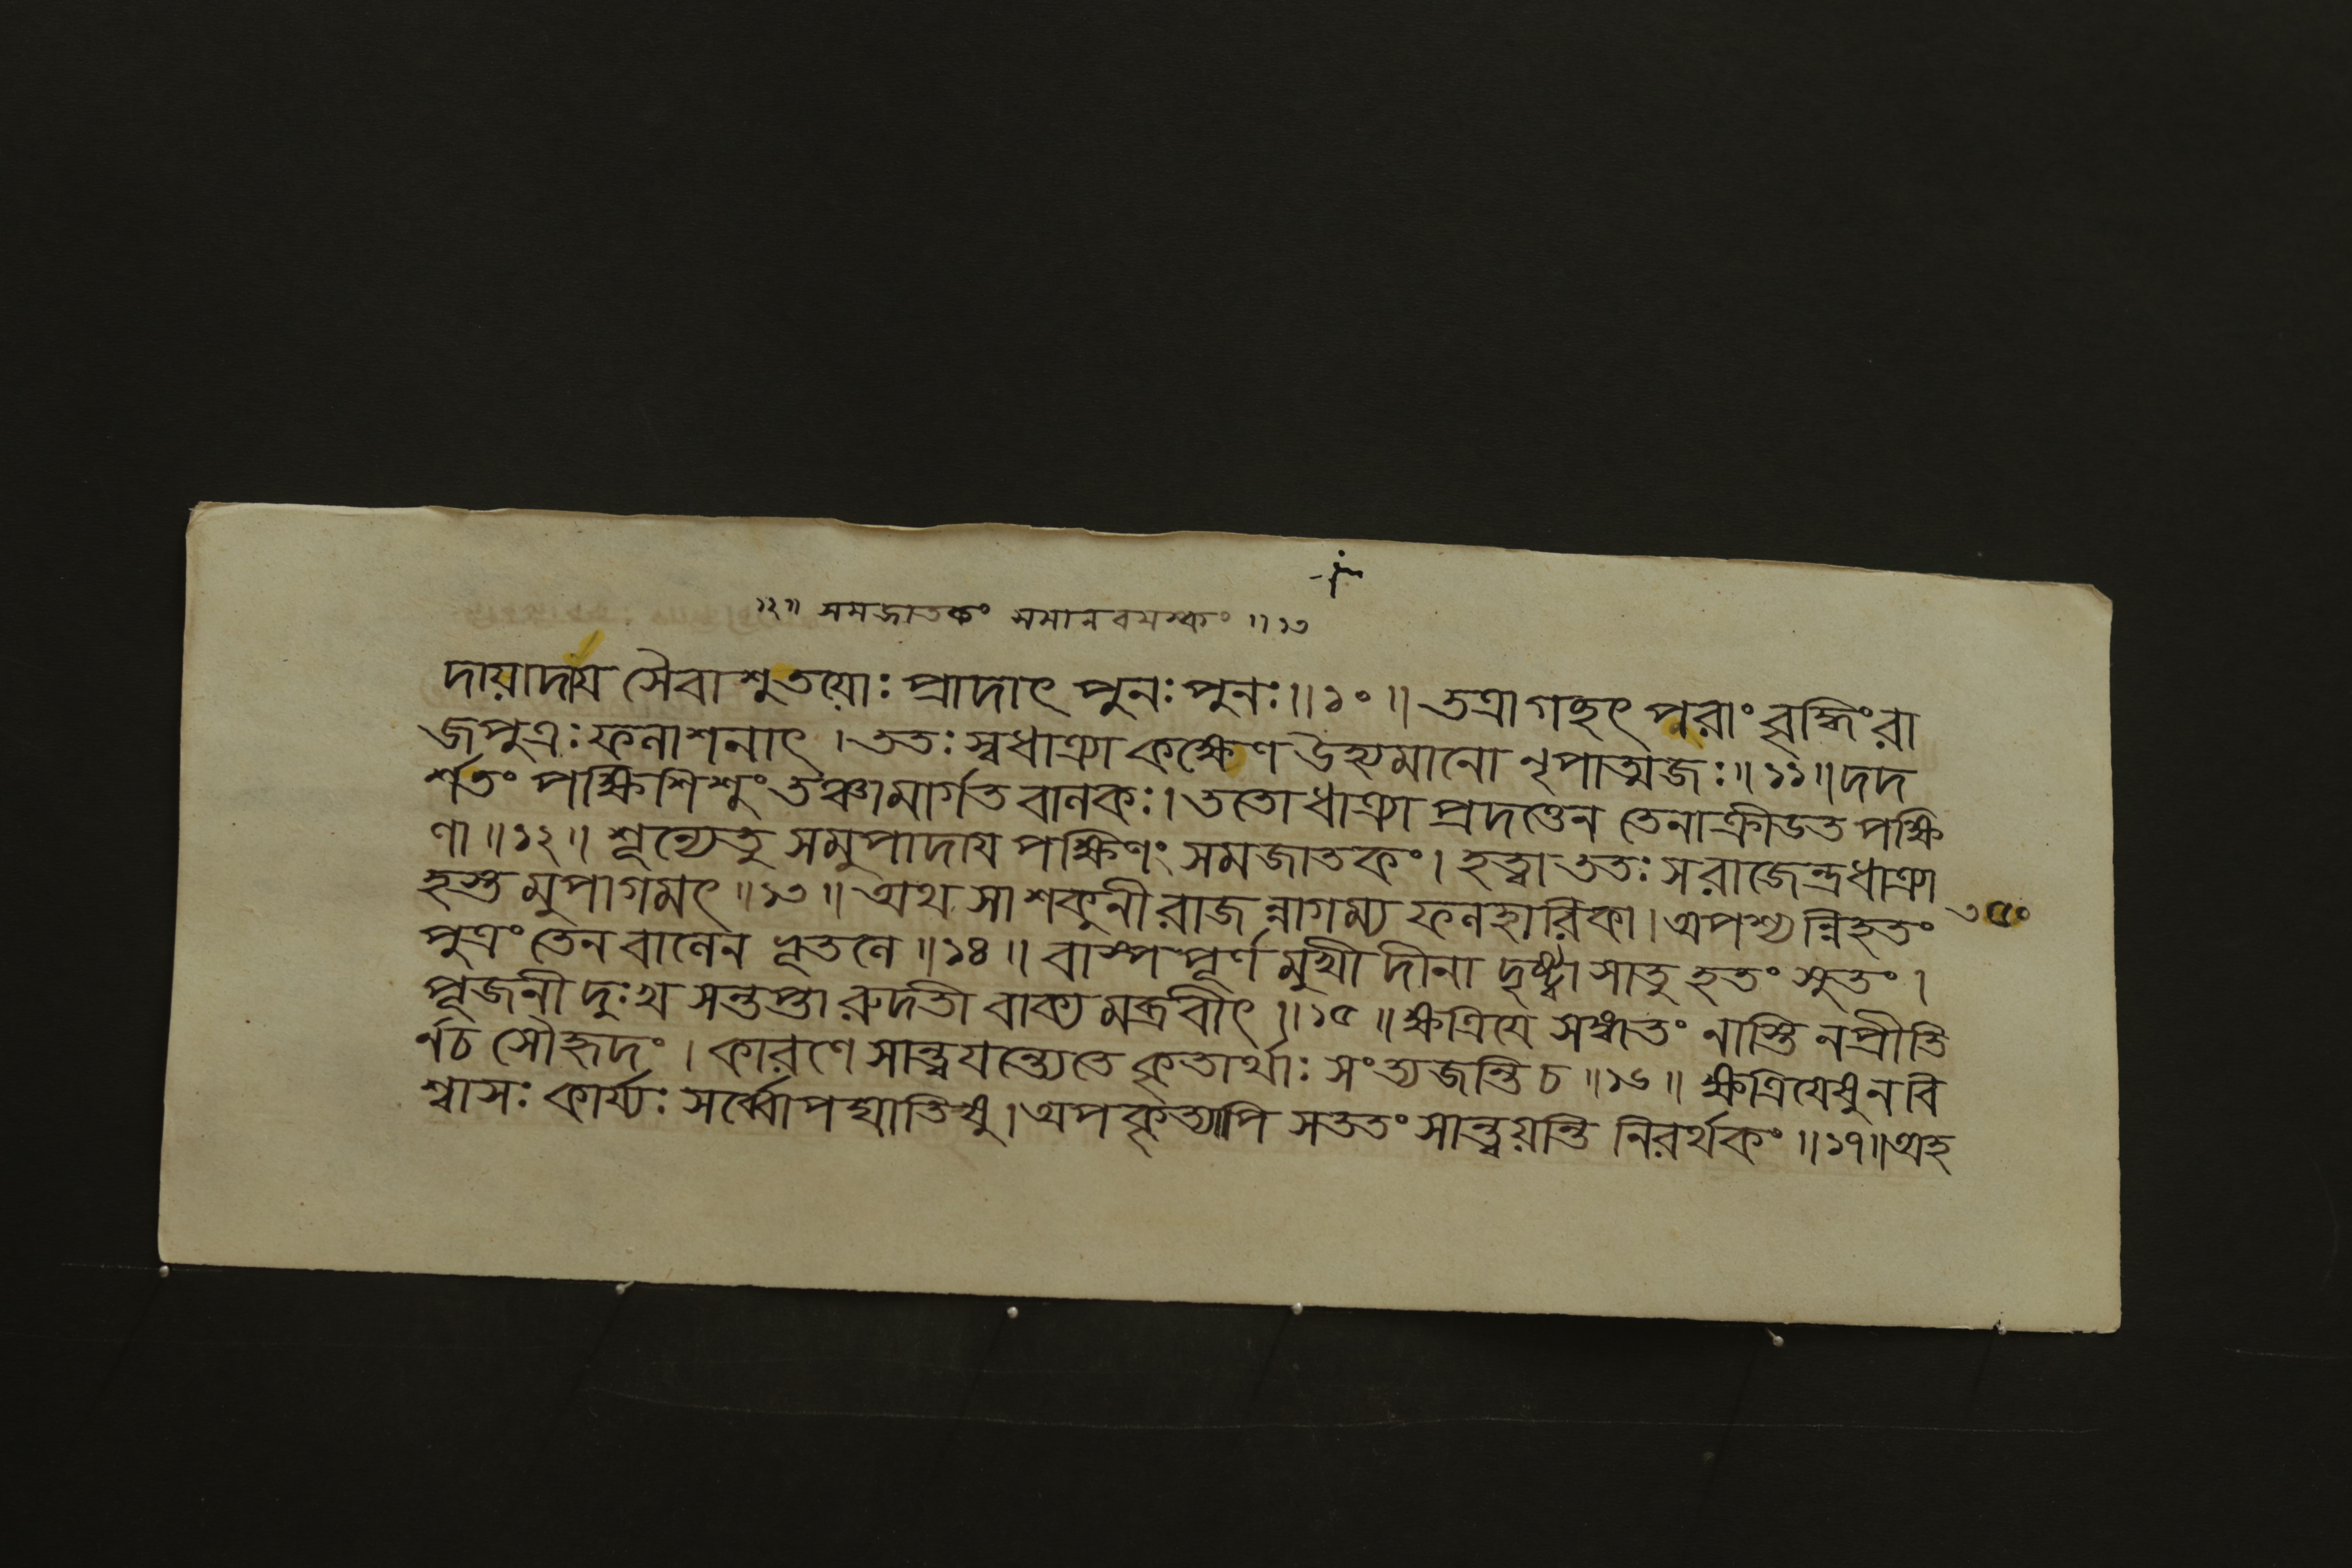 ১২॥ সমজাতকং সমানবয়স্কং ॥১৩
দায়াদায় সৈবাশু তয়োঃ প্রাদাৎ পুনঃ পুনঃ॥১০॥ তত্রাগচ্ছৎ পরাং বৃদ্ধিং রা
জপুত্রঃ ফলাশনাৎ। ততঃ স্বধাত্র্যা কক্ষেণ উহ্যমানো নৃপাত্মজঃ॥১১॥ দদ
র্শতং পক্ষিশিশুং তঞ্চামার্গত বালকঃ। ততো ধাত্র্যা প্রদত্তেন তেনাক্রীডত পক্ষি
ণা॥১২॥ শূন্যেতু সমুপাদায় পক্ষিণং সমজাতকং। হত্বা ততঃ স রাজেন্দ্র ধাত্র্যা
হস্ত মুপাগমৎ॥১৩॥ অথ সা শকুনী রাজন্নাগম্য ফলহারিকা। অপশ্যন্নিহতং
৩৫০
পুত্রং তেন বালেন ভূতলে॥১৪॥ বাস্পপূর্ণমুখী দীনা দৃষ্ট্বা সাতু হতং সুতং।
পূজনী দুঃখ সন্তপ্তা রুদতী বাক্য মব্রবীৎ॥১৫॥ ক্ষত্রিয়ে সঙ্গতং নাস্তি ন প্রীতি
র্নচ সৌহৃদং। কারণে সান্ত্বয়ন্ত্যেতে কৃতার্থাঃ সংত্যজন্তি চ॥১৬॥ ক্ষত্রিয়েষু ন বি
শ্বাসঃ কার্য্যঃ সর্ব্বোপঘাতিষু। অপকৃত্যাপি সততং সান্ত্বয়ন্তি নিরর্থকং॥১৭॥ অহ